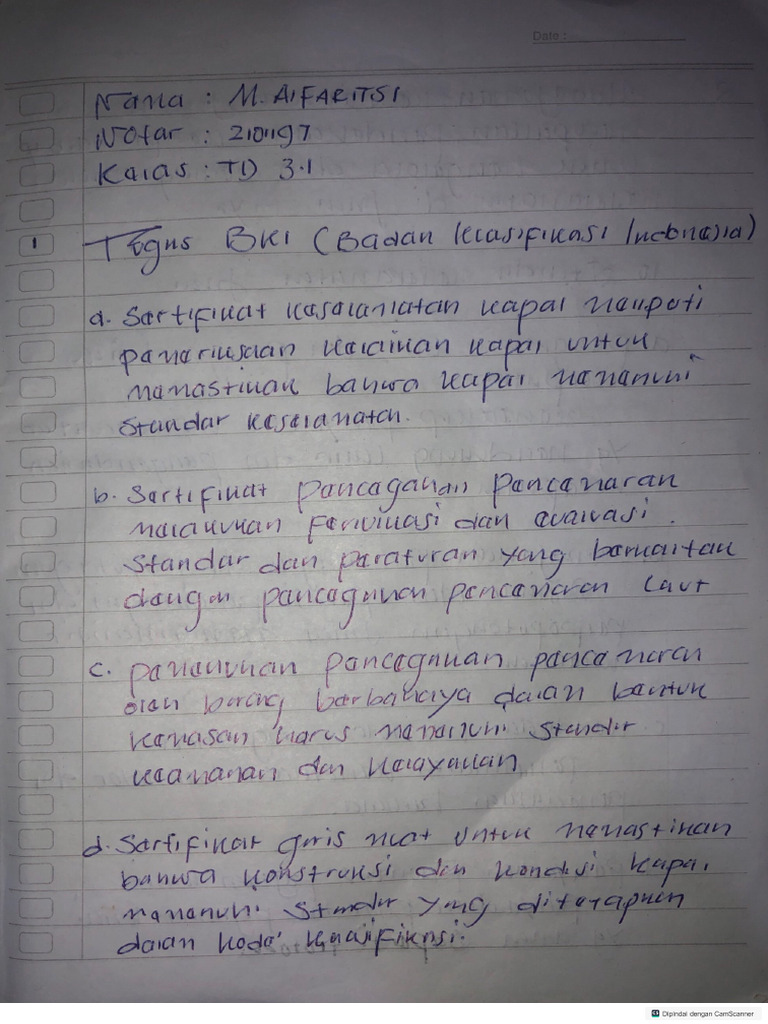 Date :
Nama : M. AlFARITSI
Notar : 2101197
Kelas : TD 3.1
1 Tugas BKI (Badan Klasifikasi Indonesia)
a. Sertifikat keselamatan kapal meliputi
pemeriksaan kelaikan kapal untuk
memastikan bahwa kapal memenuhi
standar keselamatan.
b. Sertifikat pencegahan pencemaran
melakukan ferivikasi dan evaluasi.
standar dan peraturan yang berkaitan
dengan pencegahan pencemaran laut
c. pencegahan pencemaran
oleh barang berbahaya dalam bentuk
kemasan harus memenuhi standar
keamanan dan kelayakan
d. Sertifikat garis muat untuk memastikan
bahwa konstruksi dan kondisi kapal
memenuhi standar yang diterapkan
dalam kode klasifikasi.
Dipindai dengan CamScanner